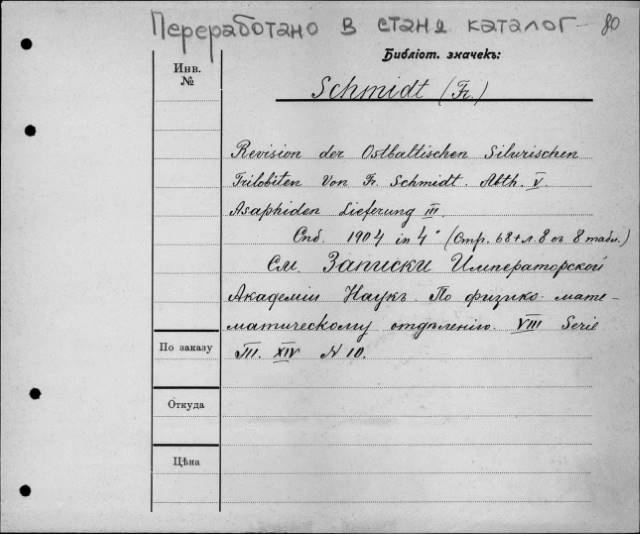 Переработано в станя каталог 80
Библіот. значекъ:
Инв.
№
Schmidt (Fr.)
Revision der Ostbaltischen Silurischen
Trilobiten Von Fr. Schmidt. Abth. V.
Asaphiden Lieferung III.
Спб. 1904 in 4° (Стр. 68+л. 8 съ 8 табл.)
См. Записки Императорской
Академіи Наукъ. По физико-мате-
матическому отдѣленію. VIII Serie
По заказу
Т. XIV N 10.
Откуда
Цѣна